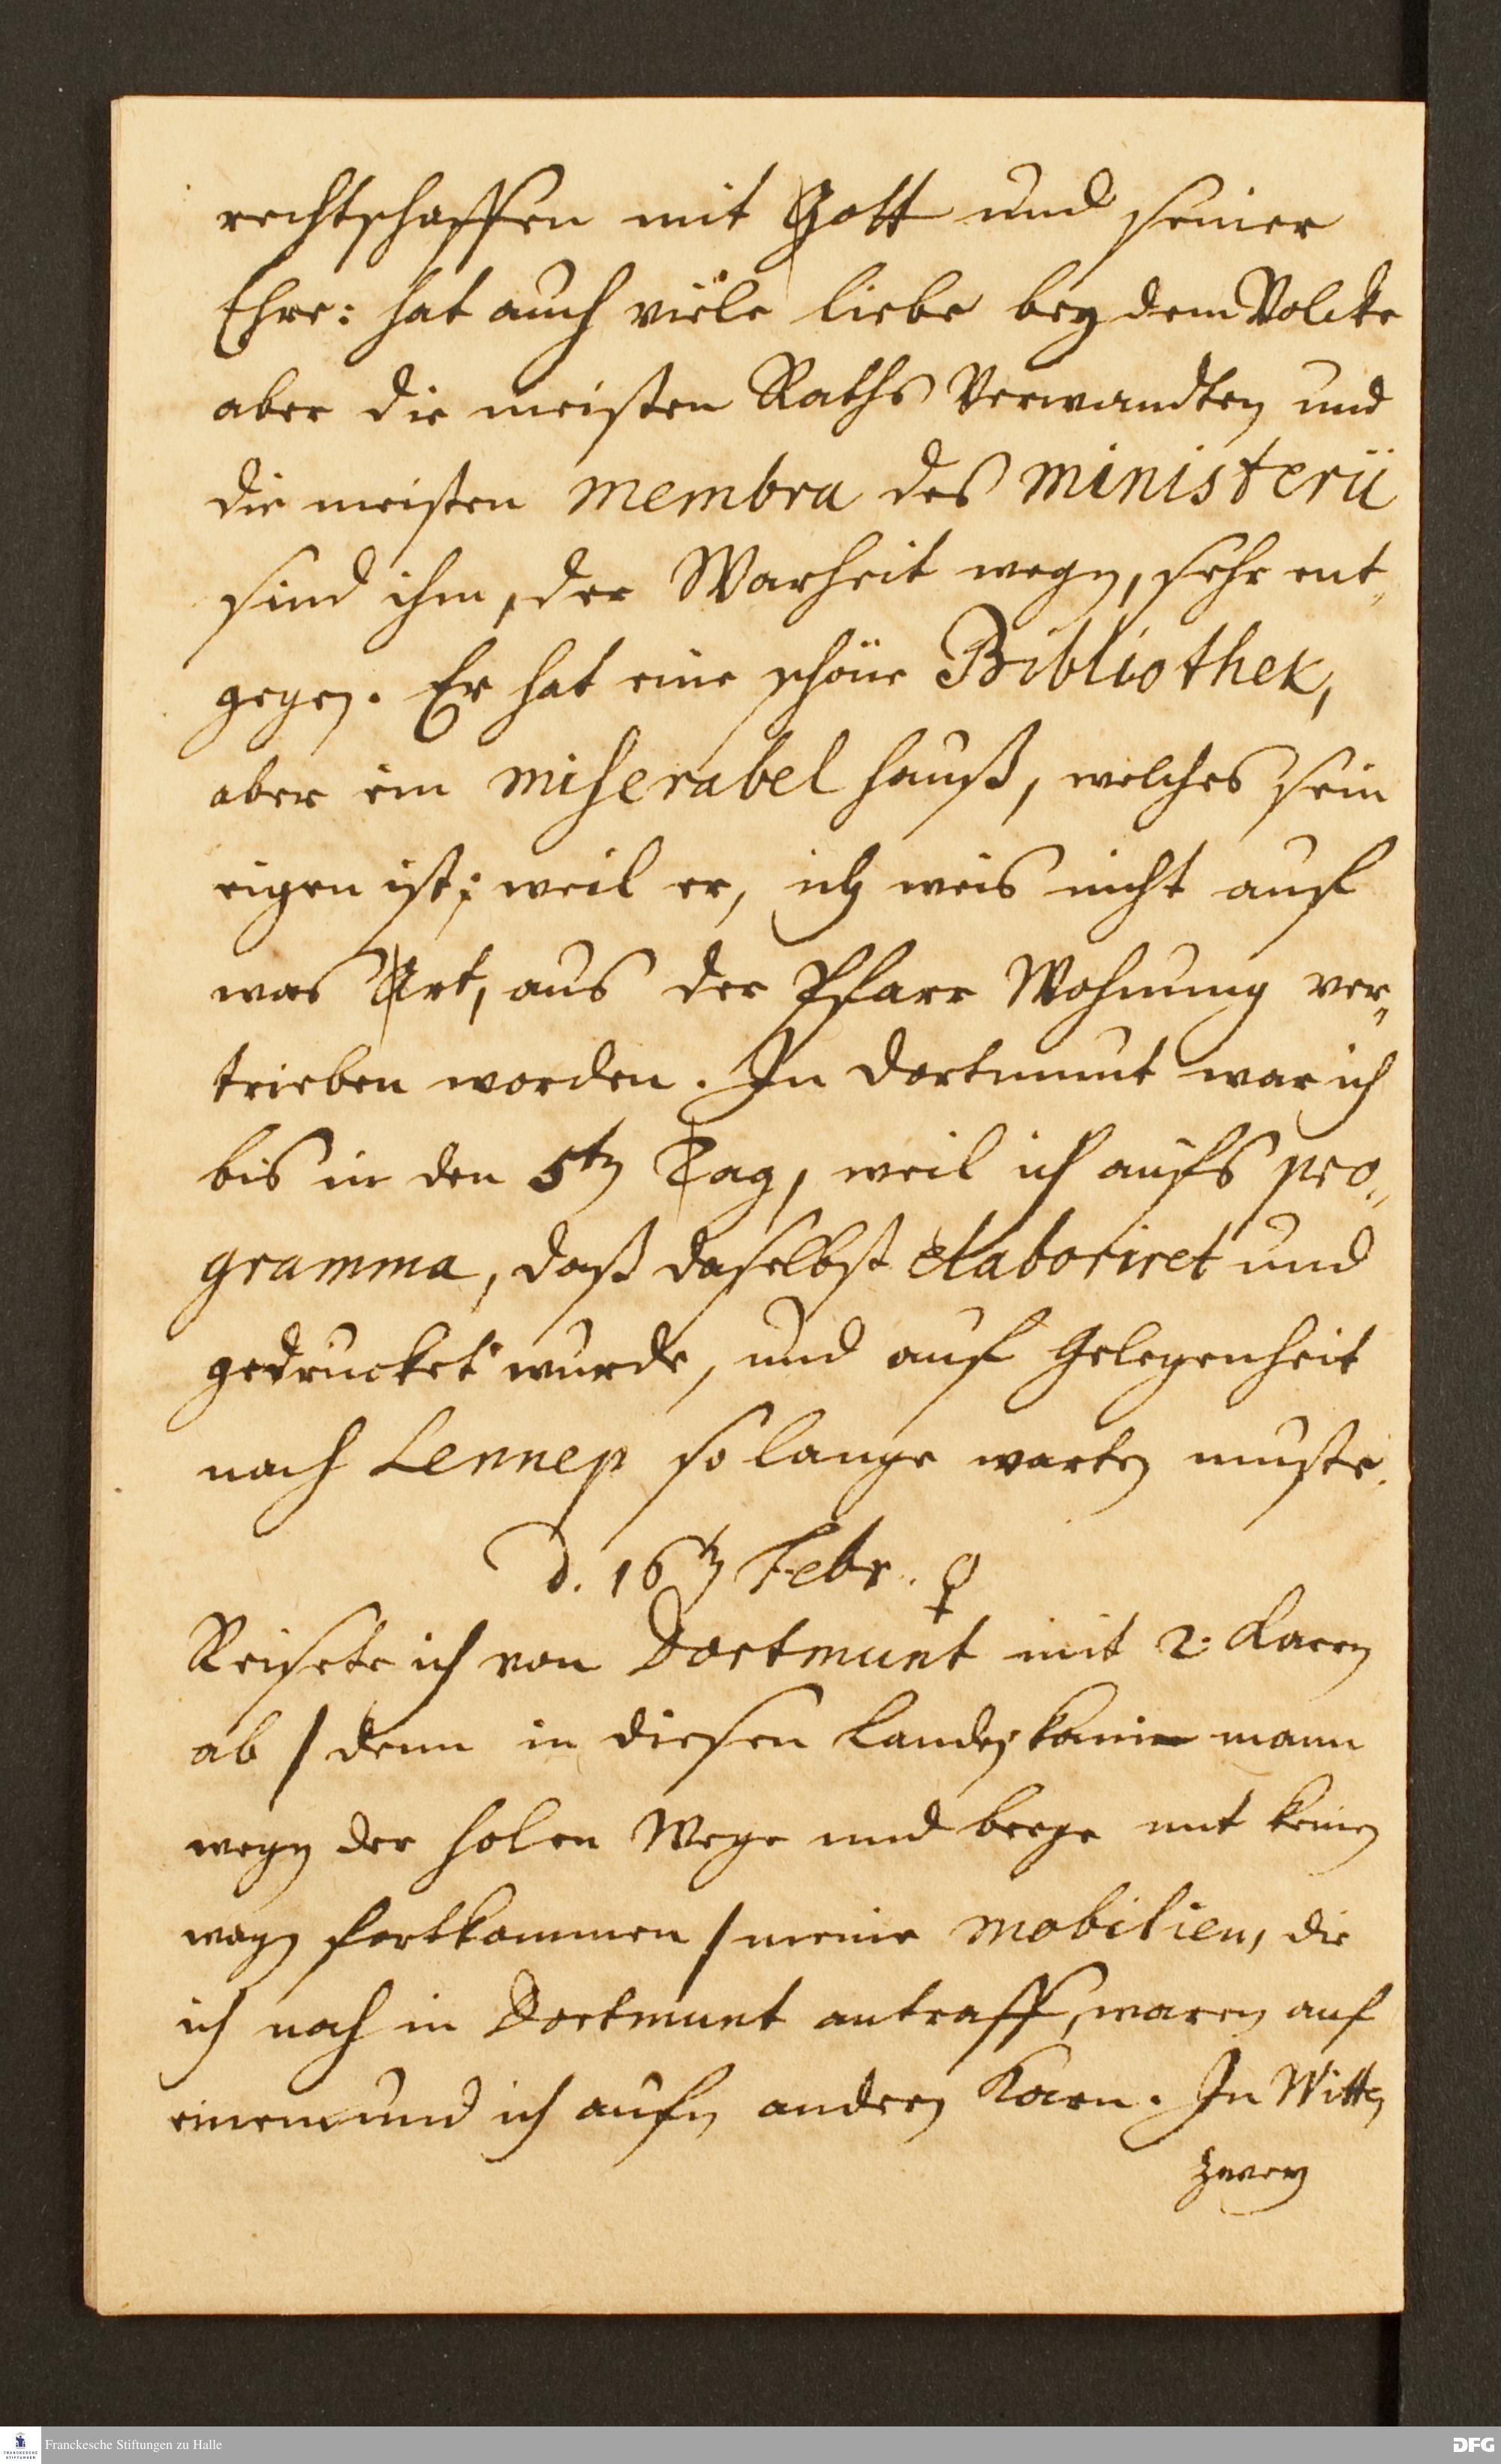 rechtschaffen mit Gott und seiner
Ehre: hat auch viele liebe bey dem Volcke
aber die meisten Raths Verwandten und
die meisten membra des ministerii
sind ihm, der Warheit wegen, sehr ent„
gegen. Er hat eine schöne Bibliothek,
aber ein miserabel hauß, welches sein
eigen ist; weil er, ich weis nicht auf
was Art, aus der Pfarr Wohnung ver„
trieben worden. In Dortmunt war ich
bis in den 5ten Tag, weil ich aufs pro„
gramma, daß daselbst elaboriret und
gedrucket wurde, und auf Gelegenheit
nach Lennep so lange warten muste.
d. 16ten Febr. ♀
Reisete ich von Dortmunt mit 2: Karen
ab / denn in diesen Landen kann mann
wegen der holen Wege und berge mit keinen
wagen fortkommen / meine mobilien, die
ich noch in Dortmunt antraff, waren auf
einem und ich aufn andern Karn. In Witten
zween
Franckesche Stiftungen zu Halle
FRANCKESCHE STIFTUNGEN
DFG